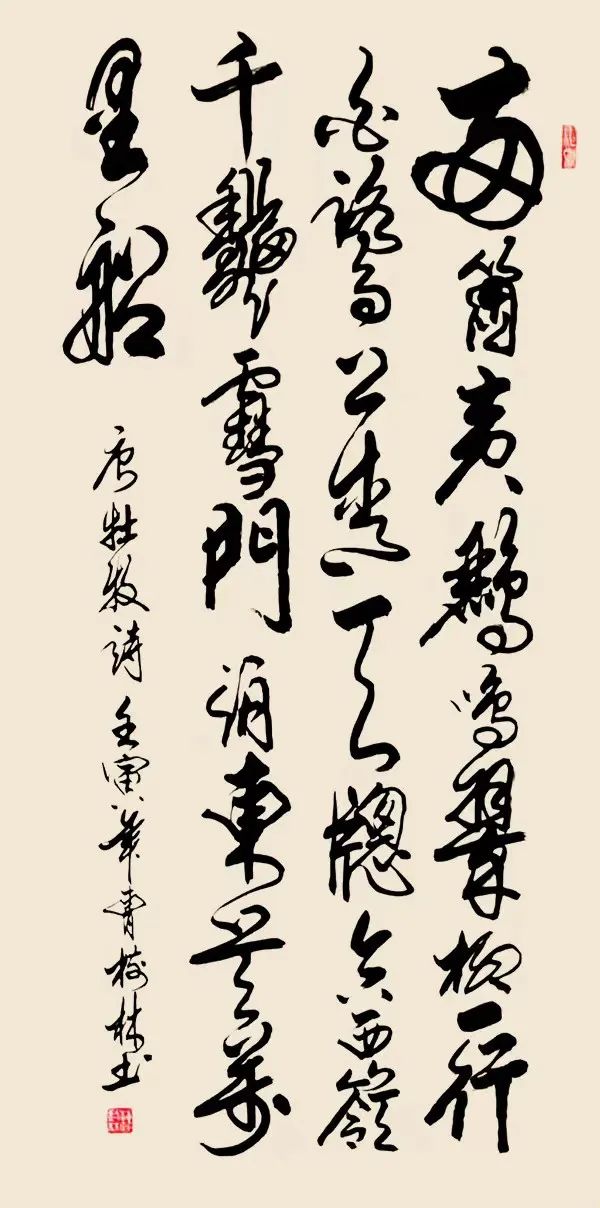 兩箇黃鸝鳴翠柳一行
白鷺上青天牕含西嶺
千龝雪門泊東吳萬
里船
唐杜牧詩壬寅年樹林书